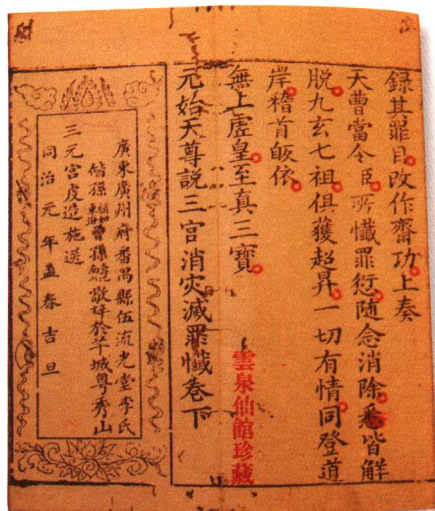 録其罪目改作齋功上奏
天曹當令臣所懴罪衍隨念消除悉皆解
脱九玄七祖俱獲超昇一切有情同登道
岸稽首皈依
無上虛皇至真三寶
雲泉仙館珍藏
元始天尊説三官消灾滅罪懴卷下
廣東廣州府番禺縣伍流光堂李氏
偕孫曾孫敬梓於羊城粤秀山
三元宮虔造施送
同治元年孟春吉旦